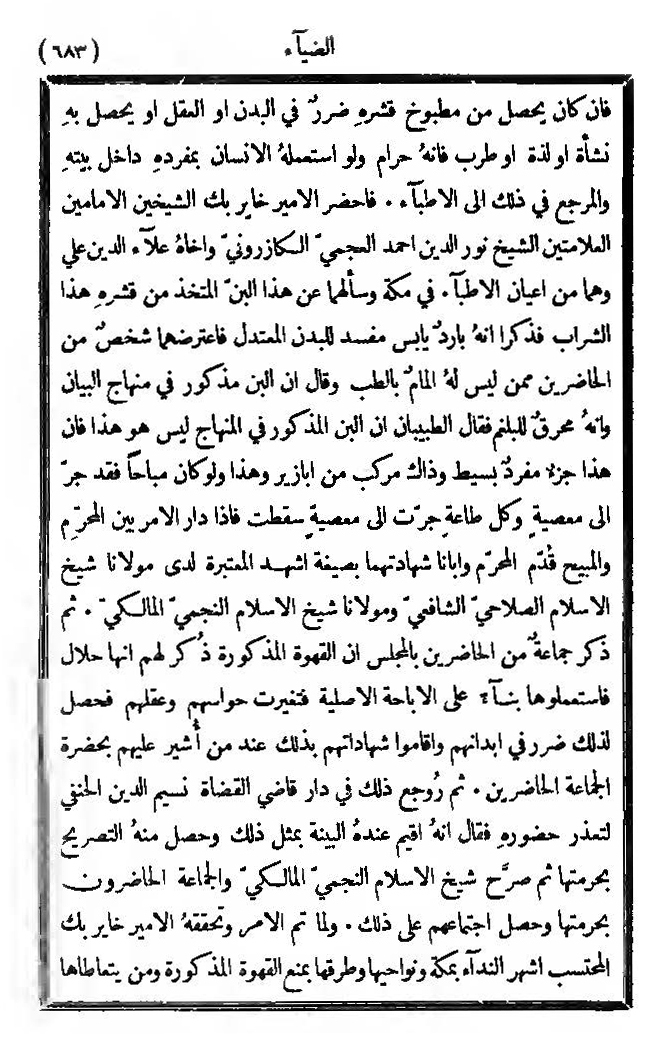 الضيآء
(٦٨٣)
فان كان يحصل من مطبوخ قشرهِ ضررٌ في البدن او العقل او يحصل بهِ
نشأة او لذة او طرب فانهُ حرام ولو استعملهُ الانسان بمفردهِ داخل بيتهِ
والمرجع في ذلك الى الاطبآء . فاحضر الامير خاير بك الشيخين الامامين
العلامتين الشيخ نور الدين احمد العجميّ الكازرونيّ واخاهُ علآء الدين علي
وهما من اعيان الاطبآء في مكة وسألهما عن هذا البنّ المتخذ من قشرهِ هذا
الشراب فذكرا انهُ باردٌ يابس مفسد للبدن المعتدل فاعترضهما شخصٌ من
الحاضرين ممن ليس لهُ المامٌ بالطب وقال ان البن مذكور في منهاج البيان
وانهُ محرقٌ للبلغم فقال الطبيبان ان البن المذكور في المنهاج ليس هو هذا فان
هذا جزءٌ مفردٌ بسيط وذاك مركب من ابازير وهذا ولو كان مباحًا فقد جرّ
الى معصيةٍ وكل طاعةٍ جرّت الى معصيةٍ سقطت فاذا دار الامر بين المحرّمِ
والمبيح قُدّم المحرّم وابانا شهادتهما بصيغة اشهد المعتبرة لدى مولانا شيخ
الاسلام الصلاحيّ الشافعيّ ومولانا شيخ الاسلام النجميّ المالكيّ . ثم
ذكر جماعةٌ من الحاضرين بالمجلس ان القهوة المذكورة ذُكر لهم انها حلال
فاستعملوها بنآءً على الاباحة الاصلية فتغيرت حواسهم وعقلهم فحصل
لذلك ضرر في ابدانهم واقاموا شهاداتهم بذلك عند من أُشير عليهم بحضرة
الجماعة الحاضرين . ثم رُوجع ذلك في دار قاضي القضاة نسيم الدين الحنفي
لتعذر حضورهِ فقال انهُ اقيم عندهُ البينة بمثل ذلك وحصل منهُ التصريح
بحرمتها ثم صرَّح شيخ الاسلام النجميّ المالكيّ والجماعة الحاضرون
بحرمتها وحصل اجتماعهم على ذلك . ولما تم الامر وتحققهُ الامير خاير بك
المحتسب اشهر الندآء بمكة ونواحيها وطرقها بمنع القهوة المذكورة ومن يتعاطاها